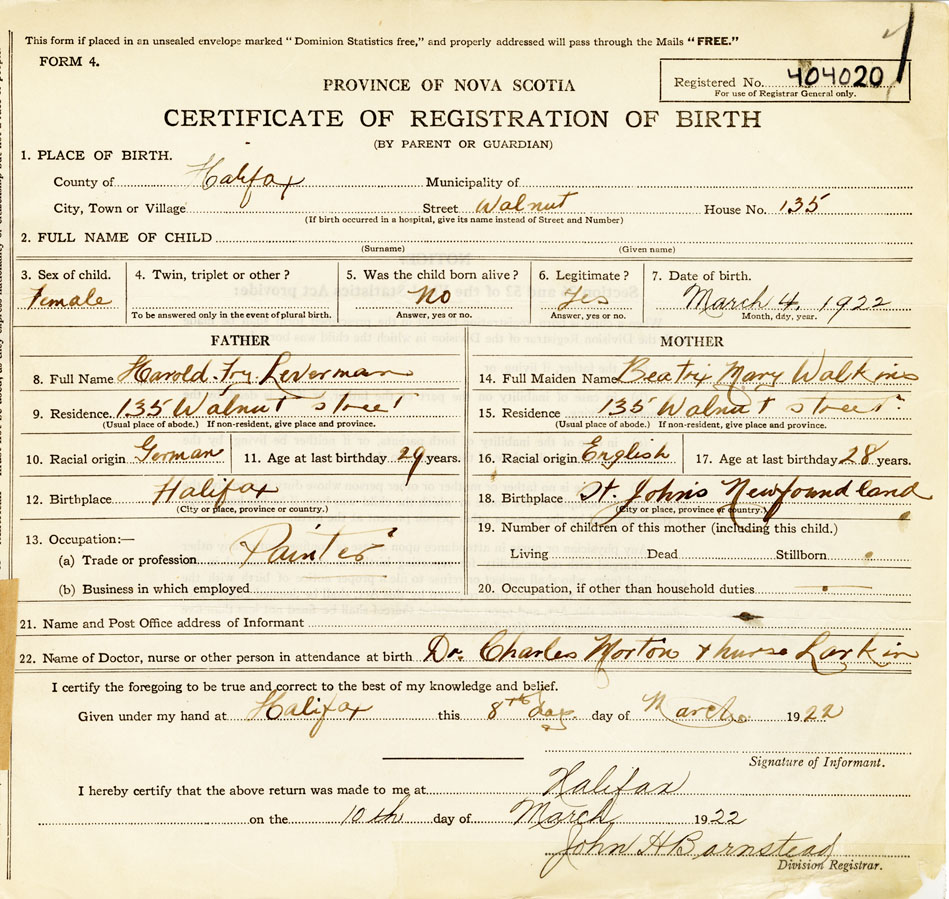 This form if placed in an unsealed envelope marked "Dominion Statistics free," and properly addressed will pass through the Mails "FREE."
FORM 4.
Registered No. 404020
For use of Registrar General only.
PROVINCE OF NOVA SCOTIA
CERTIFICATE OF REGISTRATION OF BIRTH
(BY PARENT OR GUARDIAN)
1. PLACE OF BIRTH.
County of Halifax Municipality of
City, Town or Village Street Walnut House No. 135
(If birth occurred in a hospital, give its name instead of Street and Number)
2. FULL NAME OF CHILD
(Surname) (Given name)
3. Sex of child. 4. Twin, triplet or other? 5. Was the child born alive? 6. Legitimate? 7. Date of birth.
Female No Yes March 4, 1922
To be answered only in the event of plural birth. Answer, yes or no. Answer, yes or no. Month, day, year.
FATHER MOTHER
8. Full Name Harold Fry Leverman 14. Full Maiden Name Beatrix Mary Walkins
9. Residence. 135 Walnut street 15. Residence 135 Walnut street
(Usual place of abode.) If non-resident, give place and province. (Usual place of abode.) If non-resident, give place and province.
10. Racial origin German 11. Age at last birthday 29 years. 16. Racial origin English 17. Age at last birthday 28 years.
12. Birthplace Halifax 18. Birthplace St. John's Newfoundland
(City or place, province or country.) (City or place, province or country.)
13. Occupation:— 19. Number of children of this mother (including this child.)
(a) Trade or profession Painter Living Dead Stillborn
(b) Business in which employed 20. Occupation, if other than household duties
21. Name and Post Office address of Informant
22. Name of Doctor, nurse or other person in attendance at birth Dr. Charles Morton & nurse Larkin
I certify the foregoing to be true and correct to the best of my knowledge and belief.
Given under my hand at Halifax this 8th day day of March 1922
Signature of Informant.
I hereby certify that the above return was made to me at Halifax
on the 10th day of March 1922
John H Barnstead
Division Registrar.